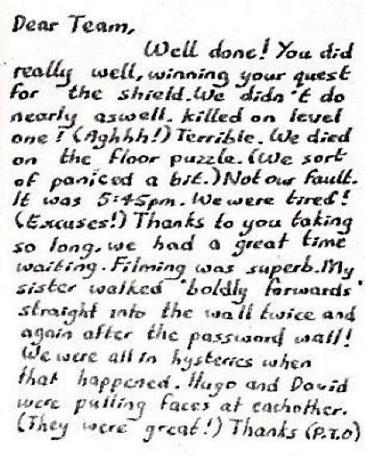 Dear Team,
Well done! You did
really well, winning your quest
for the shield. We didn't do
nearly aswell. killed on level
one! (Aghhh!) Terrible. We died
on the floor puzzle. (We sort
of paniced a bit.) Not our fault.
It was 5:45pm. We were tired!
(Excuses!) Thanks to you taking
so long, we had a great time
waiting. Filming was superb. My
sister walked 'boldly forwards'
straight into the wall twice and
again after the password wall!
We were all in hysterics when
that happened. Hugo and David
were pulling faces at eachother.
(They were great!) Thanks (P.T.O)